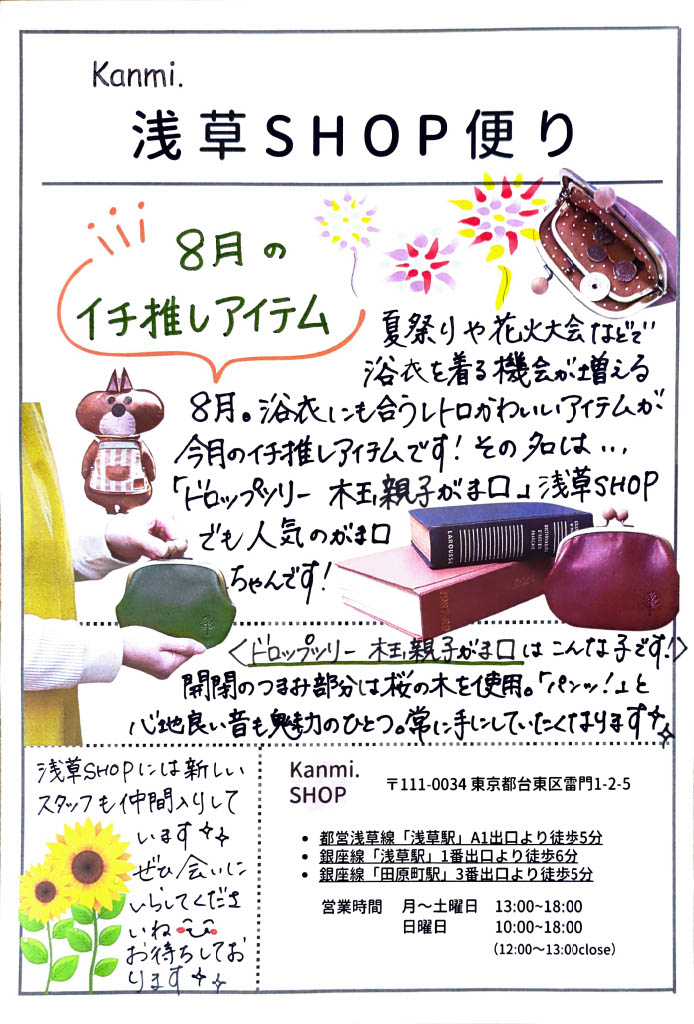 Kanmi.
浅草SHOP便り
8月の
イチ推しアイテム
夏祭りや花火大会などで
浴衣を着る機会が増える
8月。浴衣にも合うレトロかわいいアイテムが
今月のイチ推しアイテムです！その名は...
「ドロップツリー 木玉親子がま口」浅草SHOP
でも人気のがま口
ちゃんです！
LAROUSSE
<ドロップツリー 木玉親子がま口はこんな子です！>
開閉のつまみ部分は桜の木を使用。「パンッ！」と
心地良い音も魅力のひとつ。常に手にしていたくなります
浅草SHOPには新しい
スタッフも仲間入りして
います
ぜひ会いに
いらしてくださ
いね
お待ちしてお
ります
Kanmi.
SHOP
〒111-0034 東京都台東区雷門1-2-5
• 都営浅草線「浅草駅」A1出口より徒歩5分
• 銀座線「浅草駅」1番出口より徒歩6分
• 銀座線「田原町駅」3番出口より徒歩5分
営業時間 月〜土曜日 13:00~18:00
日曜日 10:00~18:00
(12:00〜13:00close)